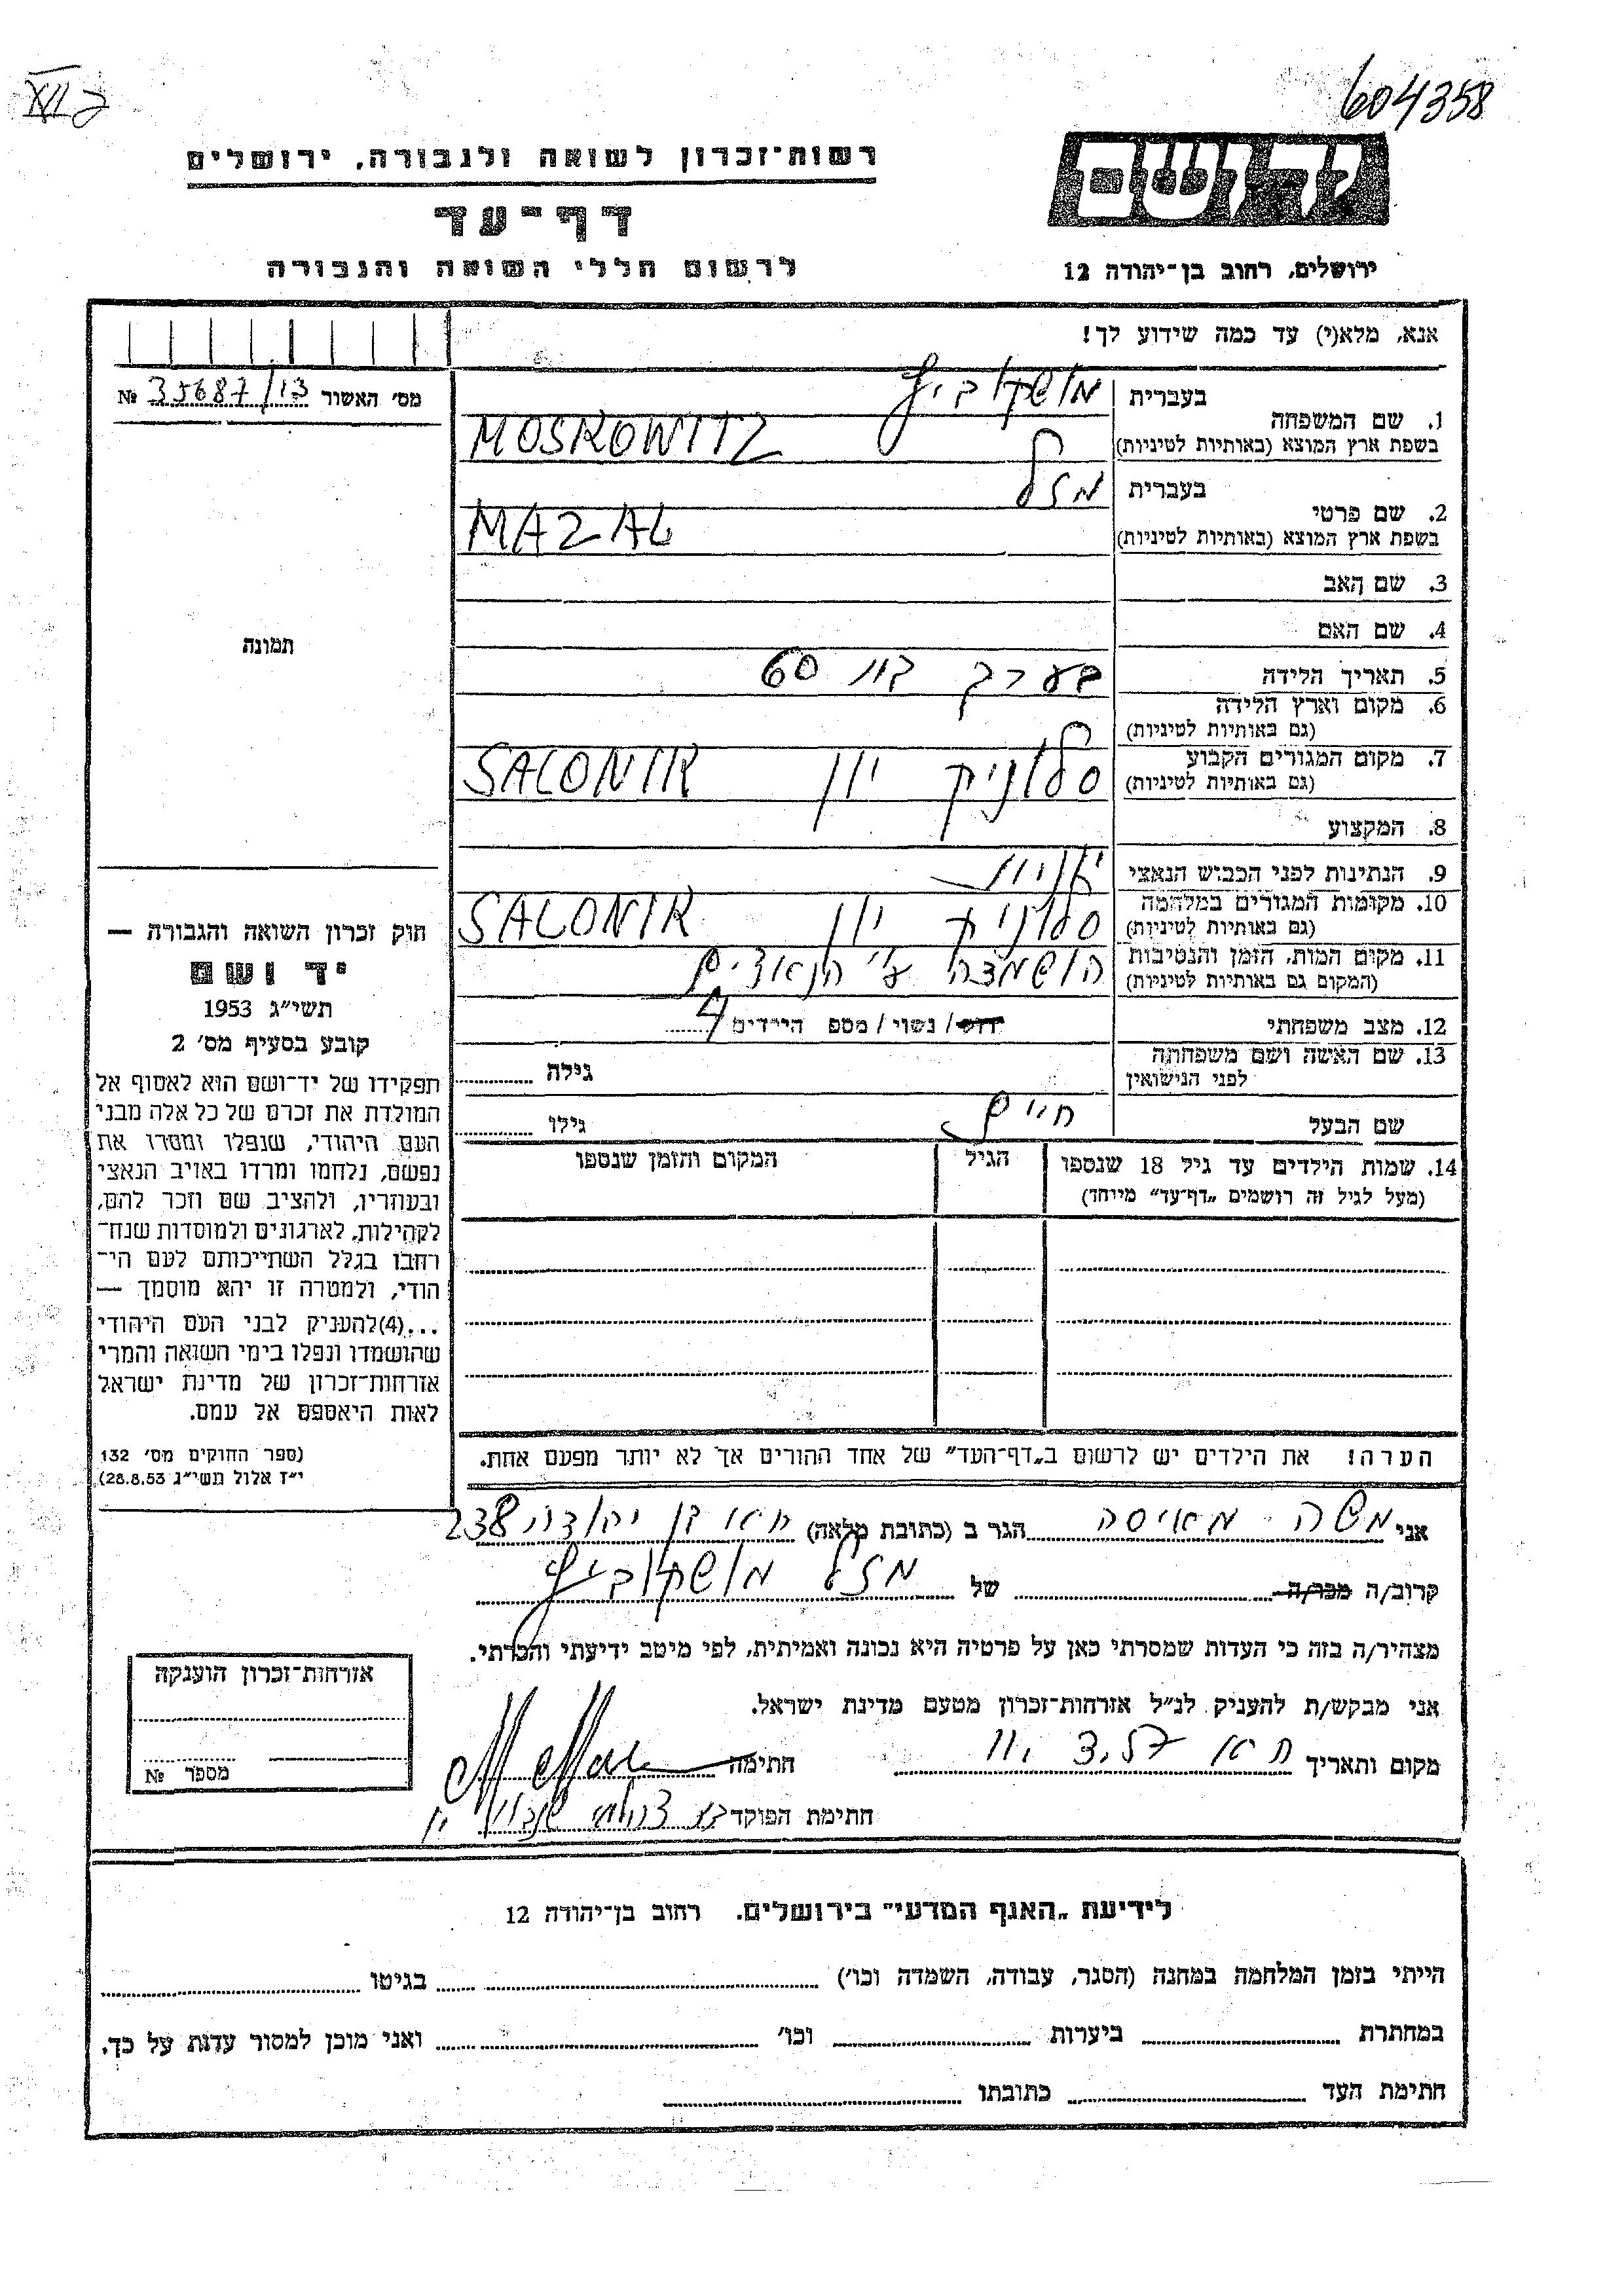 604358
רשות־זכרון לשואה ולגבורה, ירושלים
דף־עד
לרשום חללי השואה והגבורה
יד ושם
ירושלים, רחוב בן־יהודה 12
אנא, מלא(י) עד כמה שידוע לך!
מס׳ האשור 35687/13 №
1. שם המשפחה
בעברית מושקוביץ
בשפת ארץ המוצא (באותיות לטיניות) MOSKOWITZ
2. שם פרטי
בעברית מזל
בשפת ארץ המוצא (באותיות לטיניות) MAZAL
3. שם האב
4. שם האם
5. תאריך הלידה בערך בת 60
6. מקום וארץ הלידה
(גם באותיות לטיניות)
7. מקום המגורים הקבוע סלוניק יון SALONIK
(גם באותיות לטיניות)
8. המקצוע
9. הנתינות לפני הכבוש הנאצי
10. מקומות המגורים במלחמה סלוניק יון SALONIK
(גם באותיות לטיניות)
11. מקום המות, הזמן והנסיבות הושמדה ע״י הנאצים
(המקום גם באותיות לטיניות)
12. מצב משפחתי רווק/ נשוי/ מספ הילדים 4
13. שם האשה ושם משפחתה גילה
לפני הנישואין
שם הבעל חיים גילו
14. שמות הילדים עד גיל 18 שנספו הגיל המקום והזמן שנספו
(מעל לגיל זה רושמים „דף־עד״ מייחד)
תמונה
חוק זכרון השואה והגבורה —
יד ושם
תשי״ג 1953
קובע בסעיף מס׳ 2
תפקידו של יד־ושם הוא לאסוף אל
המולדת את זכרם של כל אלה מבני
העם היהודי, שנפלו ומסרו את
נפשם, נלחמו ומרדו באויב הנאצי
ובעוזריו, ולהציב שם וזכר להם,
לקהילות, לארגונים ולמוסדות שנח־
רחבו בגלל השתייכותם לעם הי־
הודי, ולמטרה זו יהא מוסמך —
...(4)להעניק לבני העם היהודי
שהושמדו ונפלו בימי השואה והמרי
אזרחות־זכרון של מדינת ישראל
לאות היאספם אל עמם.
(ספר החוקים מס׳ 132
י״ז אלול תשי״ג 28.8.53)
הערה! את הילדים יש לרשום ב„דף־העד״ של אחד ההורים אך לא יותר מפעם אחת.
אני משה מאיסה הגר ב (כתובת מלאה) ת״א בן יהודה 238
קרוב/ה מכר/ה של מזל מושקוביץ
מצהיר/ה בזה כי העדות שמסרתי כאן על פרטיה היא נכונה ואמיתית, לפי מיטב ידיעתי והכרתי.
אני מבקש/ת להעניק לנ״ל אזרחות־זכרון מטעם מדינת ישראל.
מקום ותאריך ת״א חתימה
חתימת הפוקד
אזרחות־זכרון הוענקה
מספר №
לידיעת „האגף המדעי״ בירושלים. רחוב בן־יהודה 12
הייתי בזמן המלחמה במחנה (הסגר, עבודה, השמדה וכו׳) בגיטו
במחתרת ביערות וכו׳ ואני מוכן למסור עדות על כך.
חתימת העד כתובתו